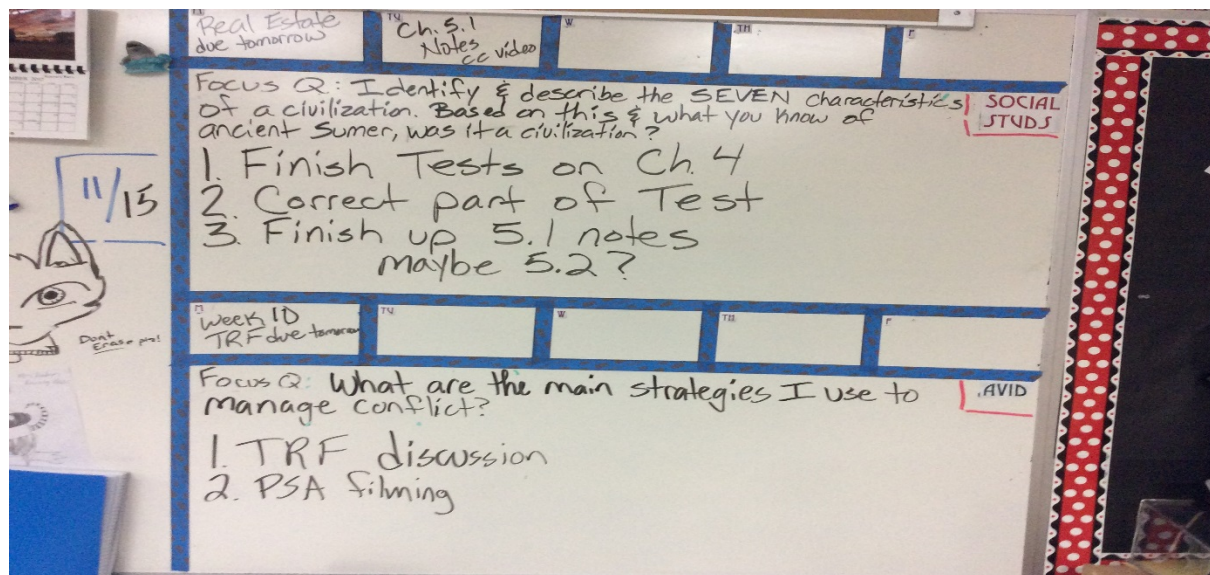 M
Real Estate
due tomorrow
TU
Ch. 5.1
Notes
cc video
W
TH
F
Focus Q: Identify & describe the SEVEN characteristics
of a civilization. Based on this & what you know of
ancient Sumer, was it a civilization?
SOCIAL
STUDS
1. Finish Tests on Ch. 4
2. Correct part of Test
3. Finish up 5.1 notes
maybe 5.2?
11/15
Don't
Erase me!
M
Week 10
TRF due tomorrow
TU
W
TH
F
Focus Q: What are the main strategies I use to
manage conflict?
AVID
1. TRF discussion
2. PSA filming